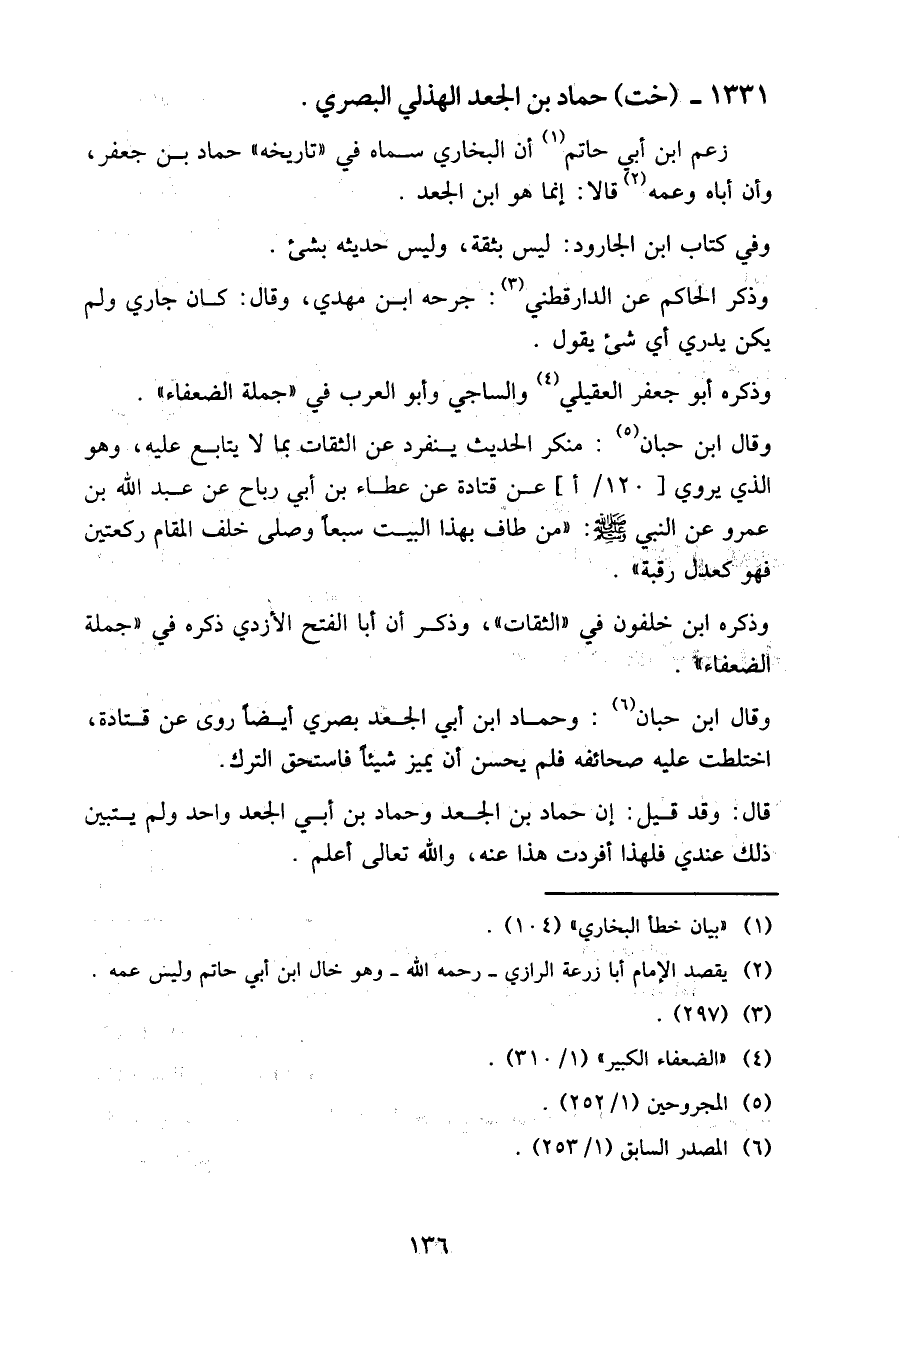 ١٣٣١ - (خت) حماد بن الجعد الهذلي البصري .
زعم ابن أبي حاتم(١) أن البخاري سماه في «تاريخه» حماد بن جعفر،
وأن أباه وعمه(٢) قالا: إنما هو ابن الجعد .
وفي كتاب ابن الجارود: ليس بثقة، وليس حديثه بشئ .
وذكر الحاكم عن الدارقطني(٣) : جرحه ابن مهدي، وقال: كان جاري ولم
يكن يدري أي شئ يقول .
وذكره أبو جعفر العقيلي(٤) والساجي وأبو العرب في «جملة الضعفاء» .
وقال ابن حبان(٥) : منكر الحديث ينفرد عن الثقات بما لا يتابع عليه، وهو
الذي يروي [ ١٢٠/ أ ] عن قتادة عن عطاء بن أبي رباح عن عبد الله بن
عمرو عن النبي ﷺ: «من طاف بهذا البيت سبعاً وصلى خلف المقام ركعتين
فهو كعدل رقبة» .
وذكره ابن خلفون في «الثقات»، وذكر أن أبا الفتح الأزدي ذكره في «جملة
الضعفاء» .
وقال ابن حبان(٦) : وحماد ابن أبي الجعد بصري أيضاً روى عن قتادة،
اختلطت عليه صحائفه فلم يحسن أن يميز شيئاً فاستحق الترك.
قال: وقد قيل: إن حماد بن الجعد وحماد بن أبي الجعد واحد ولم يتبين
ذلك عندي فلهذا أفردت هذا عنه، والله تعالى أعلم .
(١) «بيان خطأ البخاري» (١٠٤) .
(٢) يقصد الإمام أبا زرعة الرازي - رحمه الله - وهو خال ابن أبي حاتم وليس عمه .
(٣) (٢٩٧) .
(٤) «الضعفاء الكبير» (١/ ٣١٠) .
(٥) المجروحين (١/ ٢٥٢) .
(٦) المصدر السابق (١/ ٢٥٣) .
١٣٦